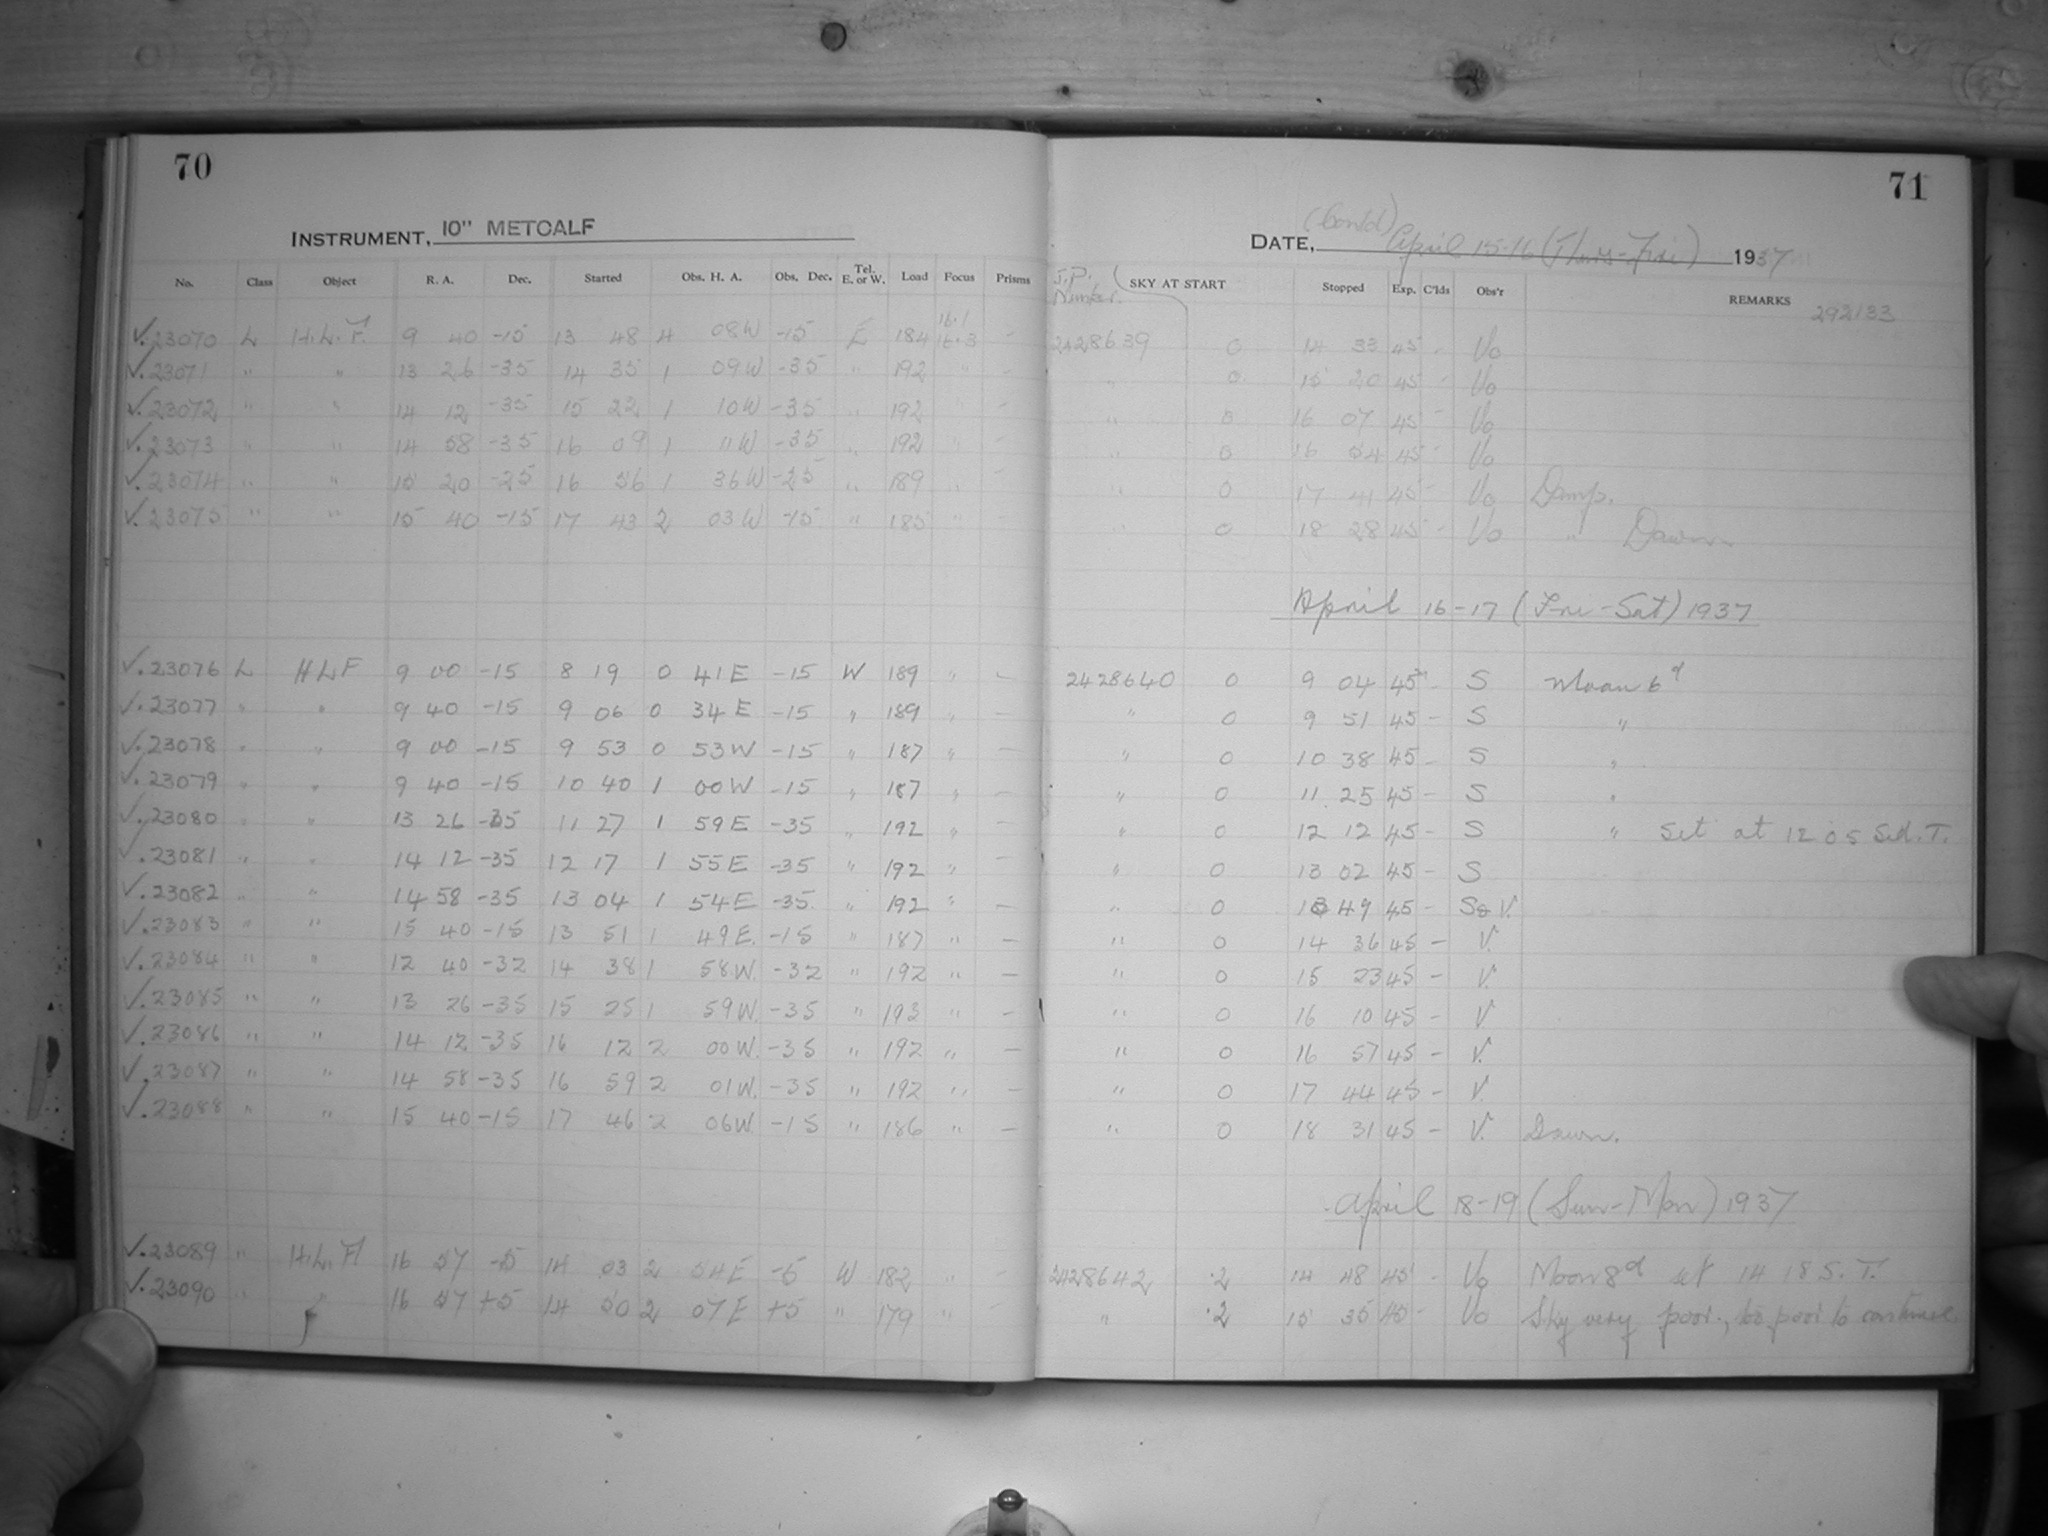 70
71
INSTRUMENT, 10" METCALF
(Cont'd)
DATE, April 15-16 (Thurs-Fri) 1937
No. Class Object R. A. Dec. Started Obs. H. A. Obs. Dec. Tel. E. or W. Load Focus Prisms J.D. Number. SKY AT START Stopped Exp. C'lds Obs'r REMARKS 292133
√.23070 L H.L.F. 9 40 -15 13 48 4 08W -15 E 184 16.1 16.3 - 2428639 0 14 33 45 - Vo
√.23071 " " 13 26 -35 14 35 1 09W -35 " 192 " - " 0 15 20 45 - Vo
√.23072 " " 14 12 -35 15 22 1 10W -35 " 192 " - " 0 16 07 45 - Vo
√.23073 " " 14 58 -35 16 09 1 11W -35 " 192 " - " 0 16 54 45 - Vo
√.23074 " " 15 20 -25 16 56 1 36W -25 " 189 " - " 0 17 41 45 - Vo Damp.
√.23075 " " 15 40 -15 17 43 2 03W -15 " 185 " - " 0 18 28 45 - Vo " Dawn
April 16-17 (Fri-Sat) 1937
√.23076 L HLF 9 00 -15 8 19 0 41E -15 W 189 " - 2428640 0 9 04 45 - S Moon 6d
√.23077 " " 9 40 -15 9 06 0 34E -15 " 189 " - " 0 9 51 45 - S "
√.23078 " " 9 00 -15 9 53 0 53W -15 " 187 " - " 0 10 38 45 - S "
√.23079 " " 9 40 -15 10 40 1 00W -15 " 187 " - " 0 11 25 45 - S "
√.23080 " " 13 26 -35 11 27 1 59E -35 " 192 " - " 0 12 12 45 - S " Set at 12 05 Sid. T.
√.23081 " " 14 12 -35 12 17 1 55E -35 " 192 " - " 0 13 02 45 - S
√.23082 " " 14 58 -35 13 04 1 54E -35 " 192 " - " 0 13 49 45 - S & V.
√.23083 " " 15 40 -15 13 51 1 49E. -15 " 187 " - " 0 14 36 45 - V.
√.23084 " " 12 40 -32 14 38 1 58W. -32 " 192 " - " 0 15 23 45 - V.
√.23085 " " 13 26 -35 15 25 1 59W. -35 " 193 " - " 0 16 10 45 - V
√.23086 " " 14 12 -35 16 12 2 00W. -35 " 192 " - " 0 16 57 45 - V.
√.23087 " " 14 58 -35 16 59 2 01W. -35 " 192 " - " 0 17 44 45 - V.
√.23088 " " 15 40 -15 17 46 2 06W. -15 " 186 " - " 0 18 31 45 - V. Dawn.
April 18-19 (Sun-Mon) 1937
√.23089 " H.L.F. 16 57 -5 14 03 2 54E -5 W 182 " - 2428642 .2 14 48 45 - Vo Moon 8d set 14 18 S. T.
√.23090 " " 16 57 +5 14 50 2 07E +5 " 179 " - " .2 15 35 45 - Vo Sky very poor., too poor to continue.